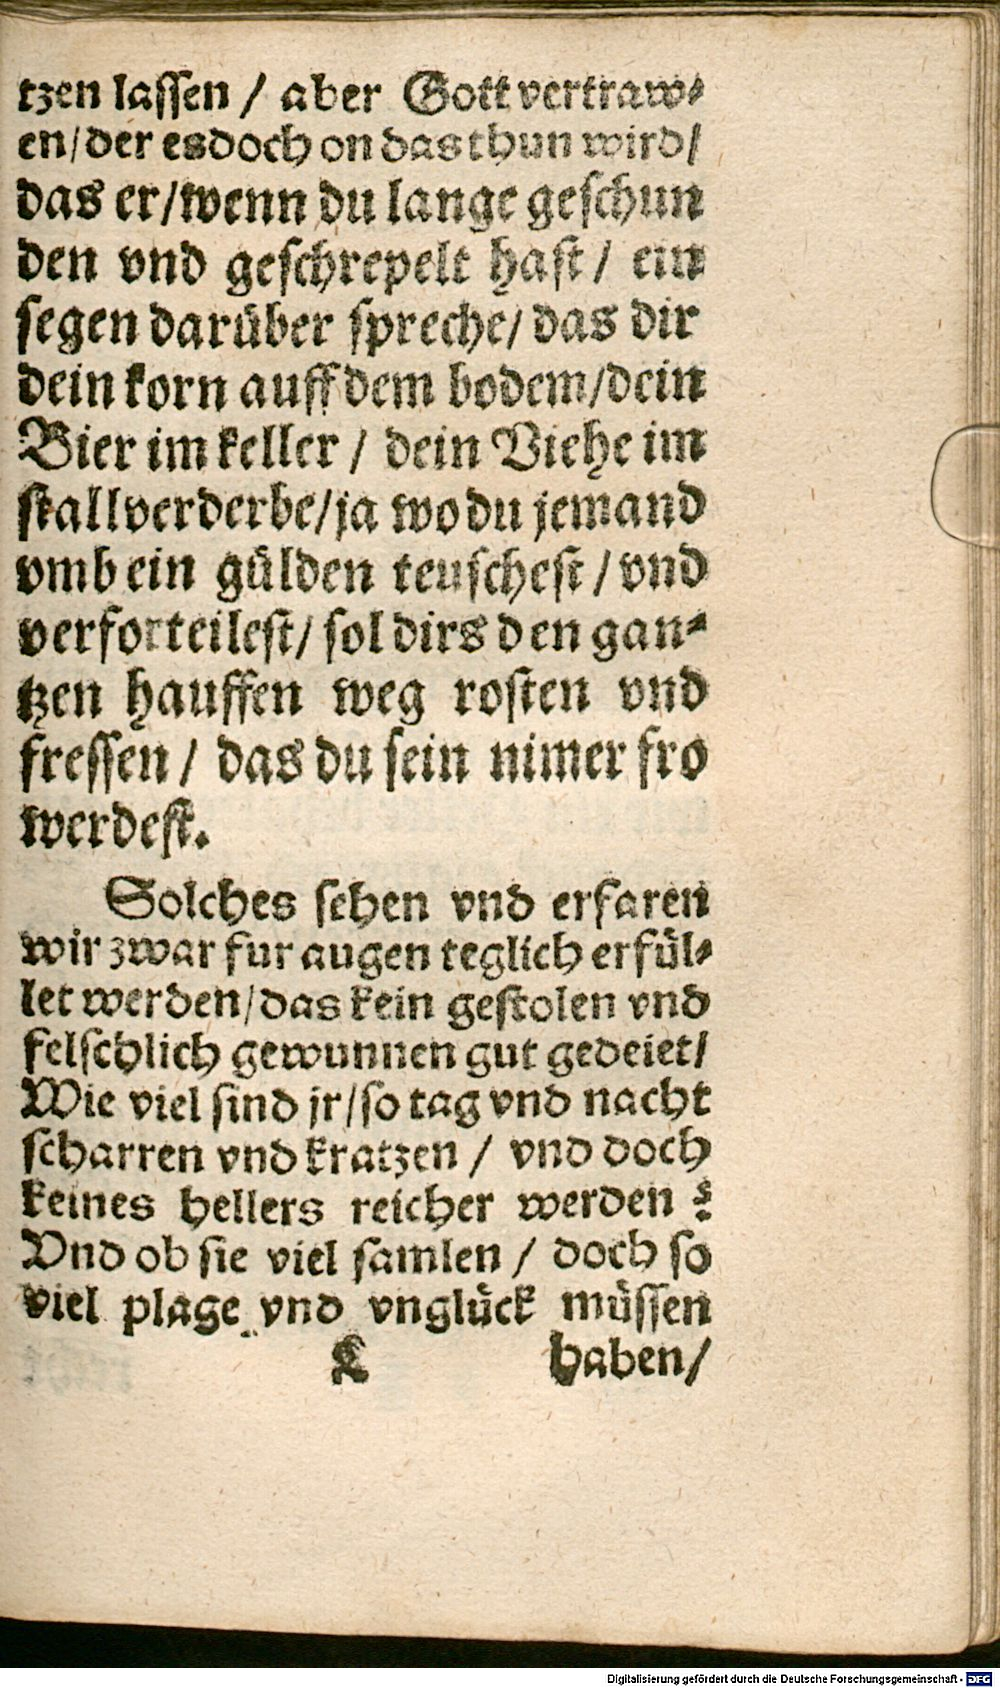 tzen lassen / aber Gott vertraw⸗
en / der es doch on das thun wird /
das er / wenn du lange geschun
den vnd geschrepelt hast / ein
segen darüber spreche / das dir
dein korn auff dem bodem / dein
Bier im keller / dein Viehe im
stall verderbe / ja wo du jemand
vmb ein gülden teuschest / vnd
verforteilest / sol dirs den gan⸗
tzen hauffen weg rosten vnd
fressen / das du sein nimer fro
werdest.
Solches sehen vnd erfaren
wir zwar fur augen teglich erfül⸗
let werden / das kein gestolen vnd
felschlich gewunnen gut gedeiet /
Wie viel sind jr / so tag vnd nacht
scharren vnd kratzen / vnd doch
keines hellers reicher werden ?
Vnd ob sie viel samlen / doch so
viel plage vnd vnglück müssen
L haben /
Digitalisierung gefördert durch die Deutsche Forschungsgemeinschaft - DFG